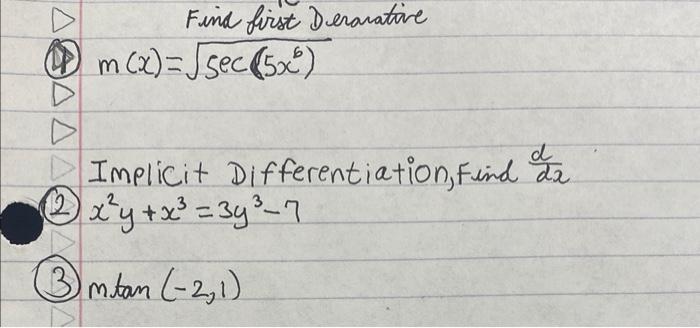 Find first Derarative
1 m(x)=√sec(5x⁶)
Implicit Differentiation, Find d/dx
2 x²y+x³=3y³-7
3 mtan (-2,1)